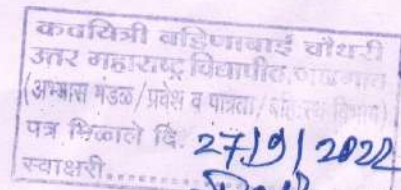 कवयित्री बहिणाबाई चौधरी
उत्तर महाराष्ट्र विद्यापीठ, जळगाव
(अभ्यास मंडळ/प्रवेश व पात्रता/
पत्र मिळाले दि. 27/9/2022
स्वाक्षरी